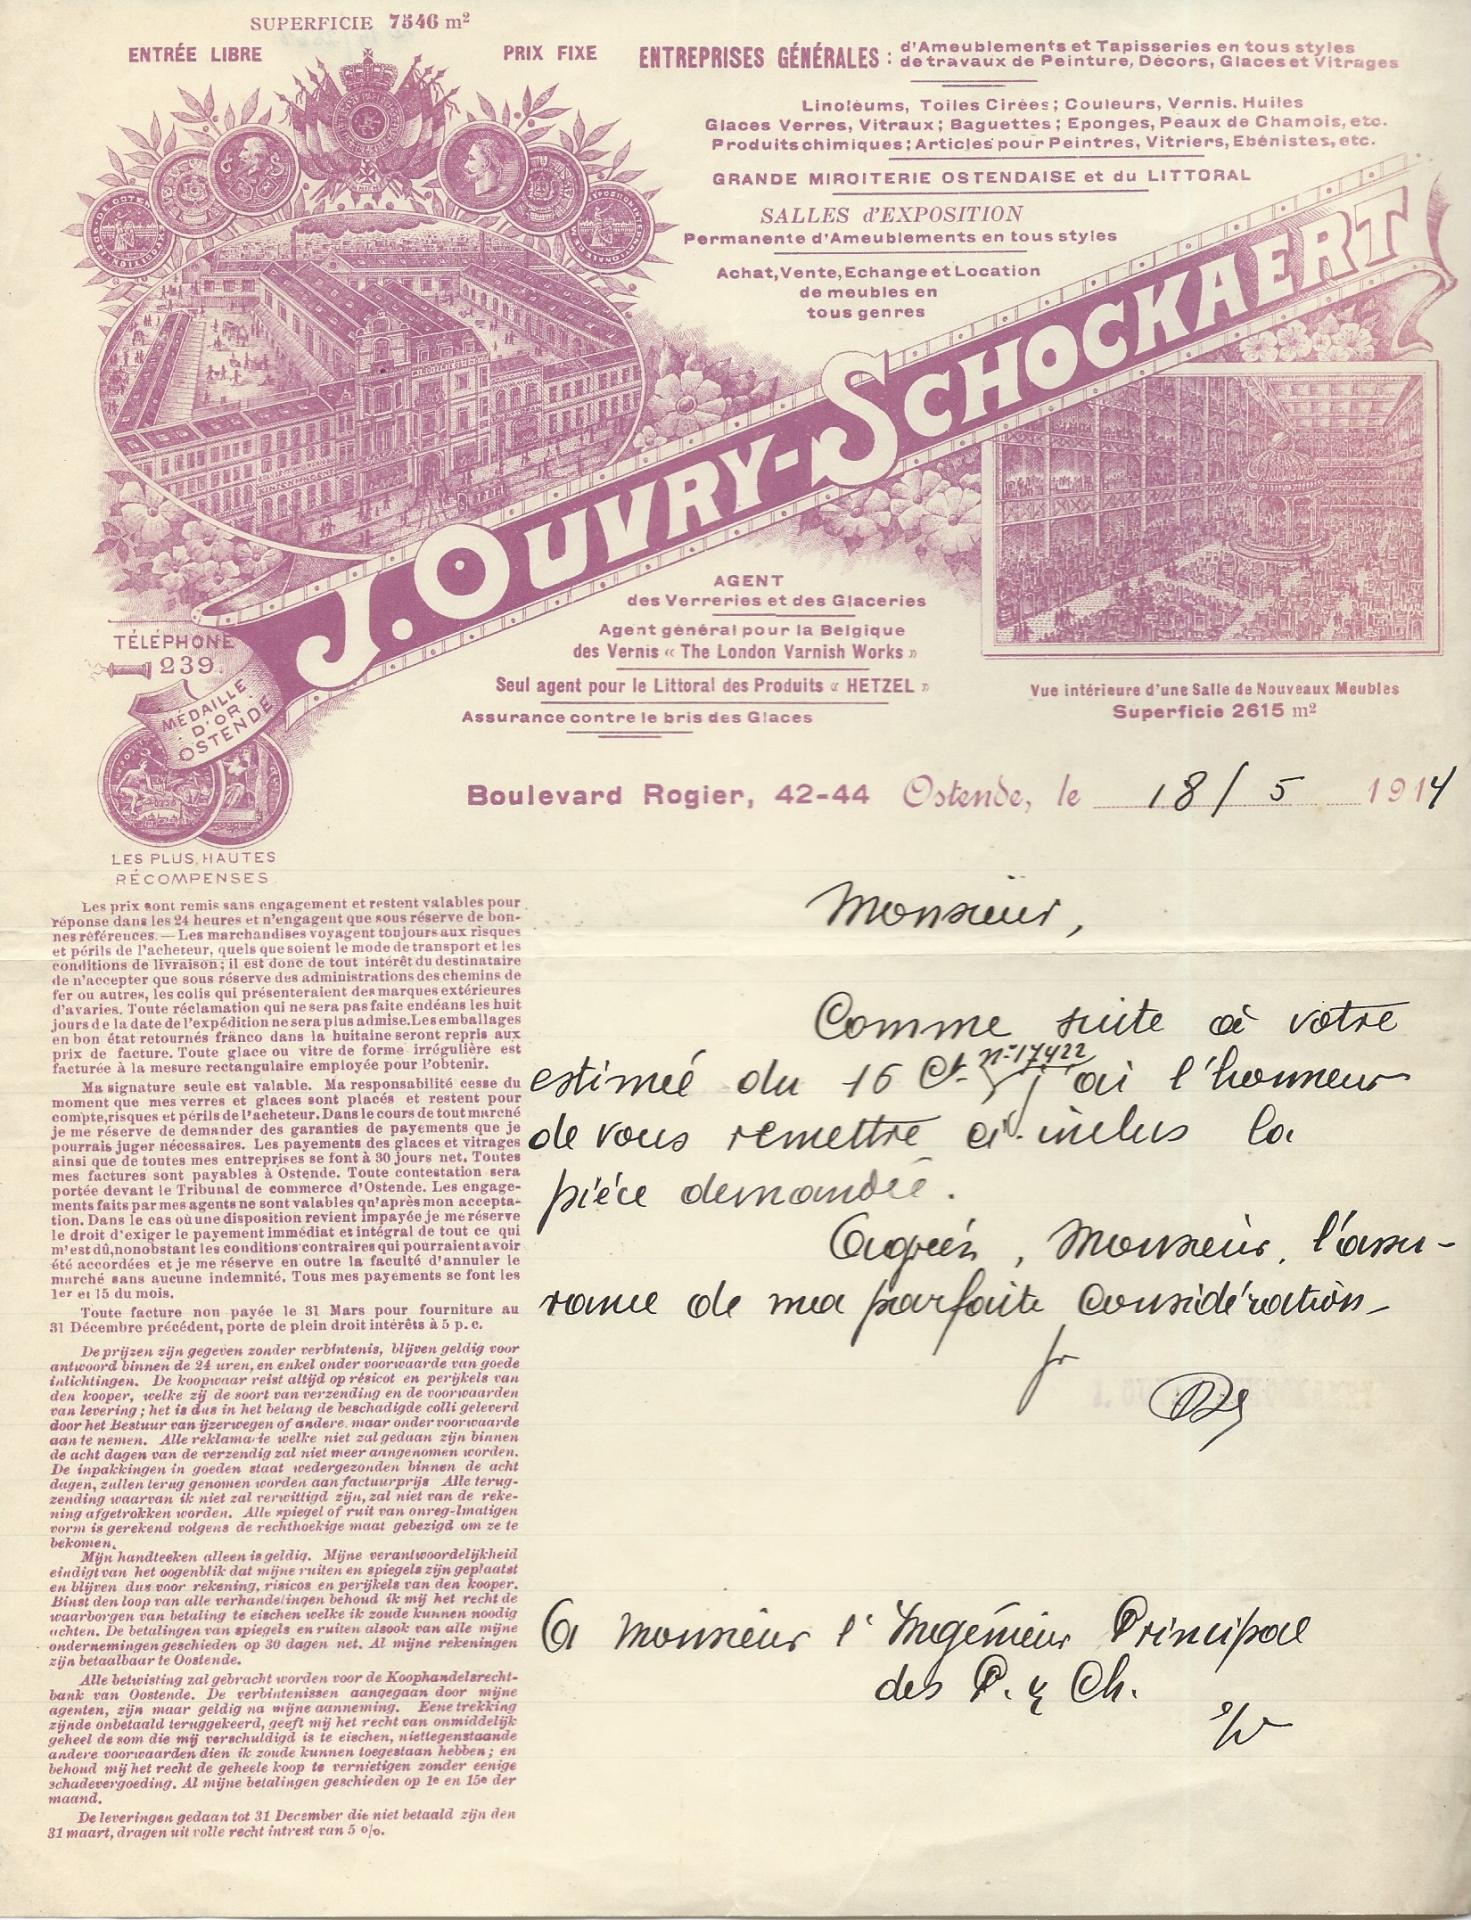 SUPERFICIE 7546 m²
ENTRÉE LIBRE
PRIX FIXE
ENTREPRISES GÉNÉRALES : d'Ameublements et Tapisseries en tous styles
de travaux de Peinture, Décors, Glaces et Vitrages
Linoléums, Toiles Cirées; Couleurs, Vernis, Huiles
Glaces Verres, Vitraux; Baguettes; Eponges, Peaux de Chamois, etc.
Produits chimiques; Articles pour Peintres, Vitriers, Ebénistes, etc.
GRANDE MIROITERIE OSTENDAISE et du LITTORAL
SALLES d'EXPOSITION
Permanente d'Ameublements en tous styles
Achat, Vente, Echange et Location
de meubles en
tous genres
J. OUVRY-SCHOCKAERT
AGENT
des Verreries et des Glaceries
Agent général pour la Belgique
des Vernis « The London Varnish Works »
Seul agent pour le Littoral des Produits « HETZEL »
Assurance contre le bris des Glaces
Vue intérieure d'une Salle de Nouveaux Meubles
Superficie 2615 m²
TÉLÉPHONE
239
MÉDAILLE
D'OR
OSTENDE
LES PLUS HAUTES
RÉCOMPENSES
Boulevard Rogier, 42-44 Ostende, le 18/5 1914
Les prix sont remis sans engagement et restent valables pour
réponse dans les 24 heures et n'engagent que sous réserve de bon-
nes références. — Les marchandises voyagent toujours aux risques
et périls de l'acheteur, quels que soient le mode de transport et les
conditions de livraison; il est donc de tout intérêt du destinataire
de n'accepter que sous réserve des administrations des chemins de
fer ou autres, les colis qui présenteraient des marques extérieures
d'avaries. Toute réclamation qui ne sera pas faite endéans les huit
jours de la date de l'expédition ne sera plus admise. Les emballages
en bon état retournés franco dans la huitaine seront repris aux
prix de facture. Toute glace ou vitre de forme irrégulière est
facturée à la mesure rectangulaire employée pour l'obtenir.
Ma signature seule est valable. Ma responsabilité cesse du
moment que mes verres et glaces sont placés et restent pour
compte, risques et périls de l'acheteur. Dans le cours de tout marché
je me réserve de demander des garanties de payements que je
pourrais juger nécessaires. Les payements des glaces et vitrages
ainsi que de toutes mes entreprises se font à 30 jours net. Toutes
mes factures sont payables à Ostende. Toute contestation sera
portée devant le Tribunal de commerce d'Ostende. Les engage-
ments faits par mes agents ne sont valables qu'après mon accepta-
tion. Dans le cas où une disposition revient impayée je me réserve
le droit d'exiger le payement immédiat et intégral de tout ce qui
m'est dû, nonobstant les conditions contraires qui pourraient avoir
été accordées et je me réserve en outre la faculté d'annuler le
marché sans aucune indemnité. Tous mes payements se font les
1er et 15 du mois.
Toute facture non payée le 31 Mars pour fourniture au
31 Décembre précédent, porte de plein droit intérêts à 5 p. c.
De prijzen zijn gegeven zonder verbintenis, blijven geldig voor
antwoord binnen de 24 uren, en enkel onder voorwaarde van goede
inlichtingen. De koopwaar reist altijd op résicot en perijkels van
den kooper, welke zij de soort van verzending en de voorwaarden
van levering; het is dus in het belang de beschadigde colli geleverd
door het Bestuur van ijzerwegen of andere, maar onder voorwaarde
aan te nemen. Alle reklamatie welke niet zal gedaan zijn binnen
de acht dagen van de verzendig zal niet meer aangenomen worden.
De inpakkingen in goeden staat wedergezonden binnen de acht
dagen, zullen terug genomen worden aan factuurprijs Alle terug-
zending waarvan ik niet zal verwittigd zijn, zal niet van de reke-
ning afgetrokken worden. Alle spiegel of ruit van onreg-lmatigen
vorm is gerekend volgens de rechthoekige maat gebezigd om ze te
bekomen.
Mijn handteeken alleen is geldig. Mijne verantwoordelijkheid
eindigt van het oogenblik dat mijne ruiten en spiegels zijn geplaatst
en blijven dus voor rekening, risicos en perijkels van den kooper.
Binst den loop van alle verhandelingen behoud ik mij het recht de
waarborgen van betaling te eischen welke ik zoude kunnen noodig
achten. De betalingen van spiegels en ruiten alsook van alle mijne
ondernemingen geschieden op 30 dagen net. Al mijne rekeningen
zijn betaalbaar te Oostende.
Alle betwisting zal gebracht worden voor de Koophandelsrecht-
bank van Oostende. De verbintenissen aangegaan door mijne
agenten, zijn maar geldig na mijne aanneming. Eene trekking
zijnde onbetaald teruggekeerd, geeft mij het recht van onmiddelijk
geheel de som die mij verschuldigd is te eischen, niettegenstaande
andere voorwaarden dien ik zoude kunnen toegestaan hebben; en
behoud mij het recht de geheele koop te vernietigen zonder eenige
schadevergoeding. Al mijne betalingen geschieden op 1e en 15e der
maand.
De leveringen gedaan tot 31 December die niet betaald zijn den
31 maart, dragen uit volle recht intrest van 5 o/o.
Monsieur,
Comme suite à votre
estimée du 16 Ct. n° 17422 j'ai l'honneur
de vous remettre ci-inclus la
pièce demandée.
Agréez, Monsieur, l'assu-
rance de ma parfaite considération
A Monsieur l'Ingénieur Principal
des P. & Ch.